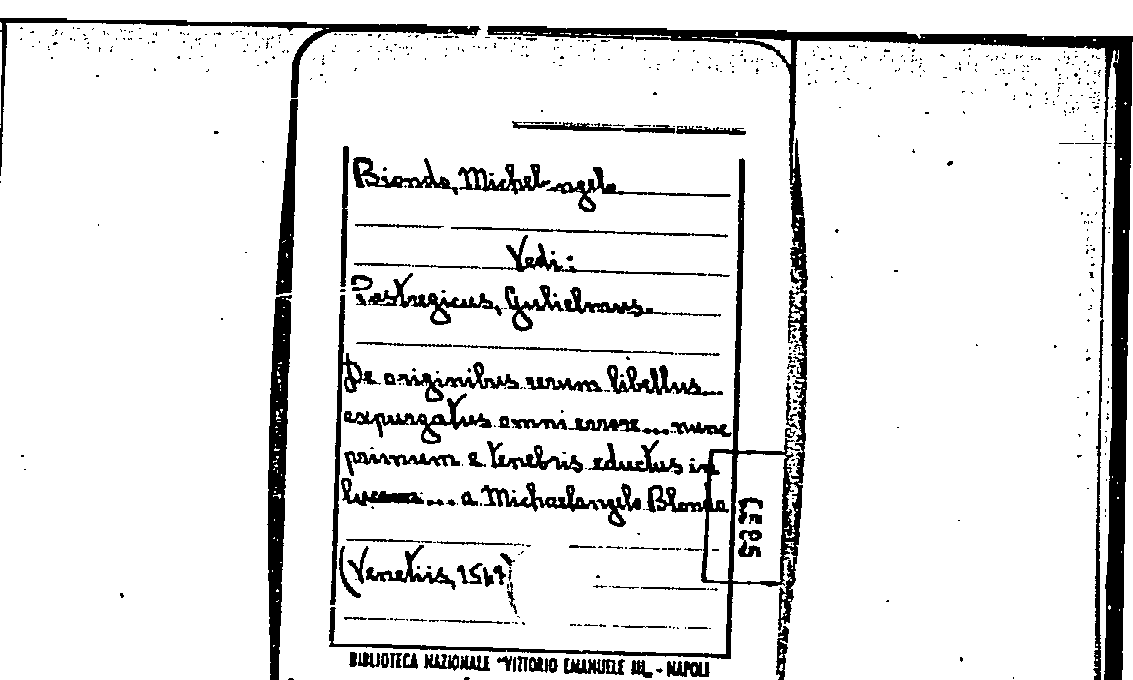 Biondo, Michel-ngelo
Vedi:
Pastregicus, Gulielmus.
De originibus rerum libellus...
expurgatus omni errore... nunc
primum e tenebris eductus in
lucem... a Michaelangelo Blondo
(Venetiis, 1547)
BIBLIOTECA NAZIONALE "VITTORIO EMANUELE III" - NAPOLI